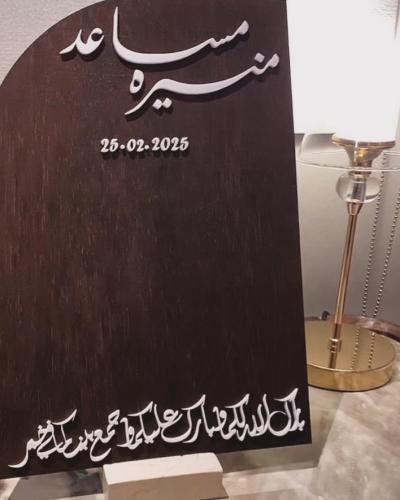 مساعد
منيره
25.02.2025
بارك الله لكما وبارك عليكما وجمع بينكما في خير